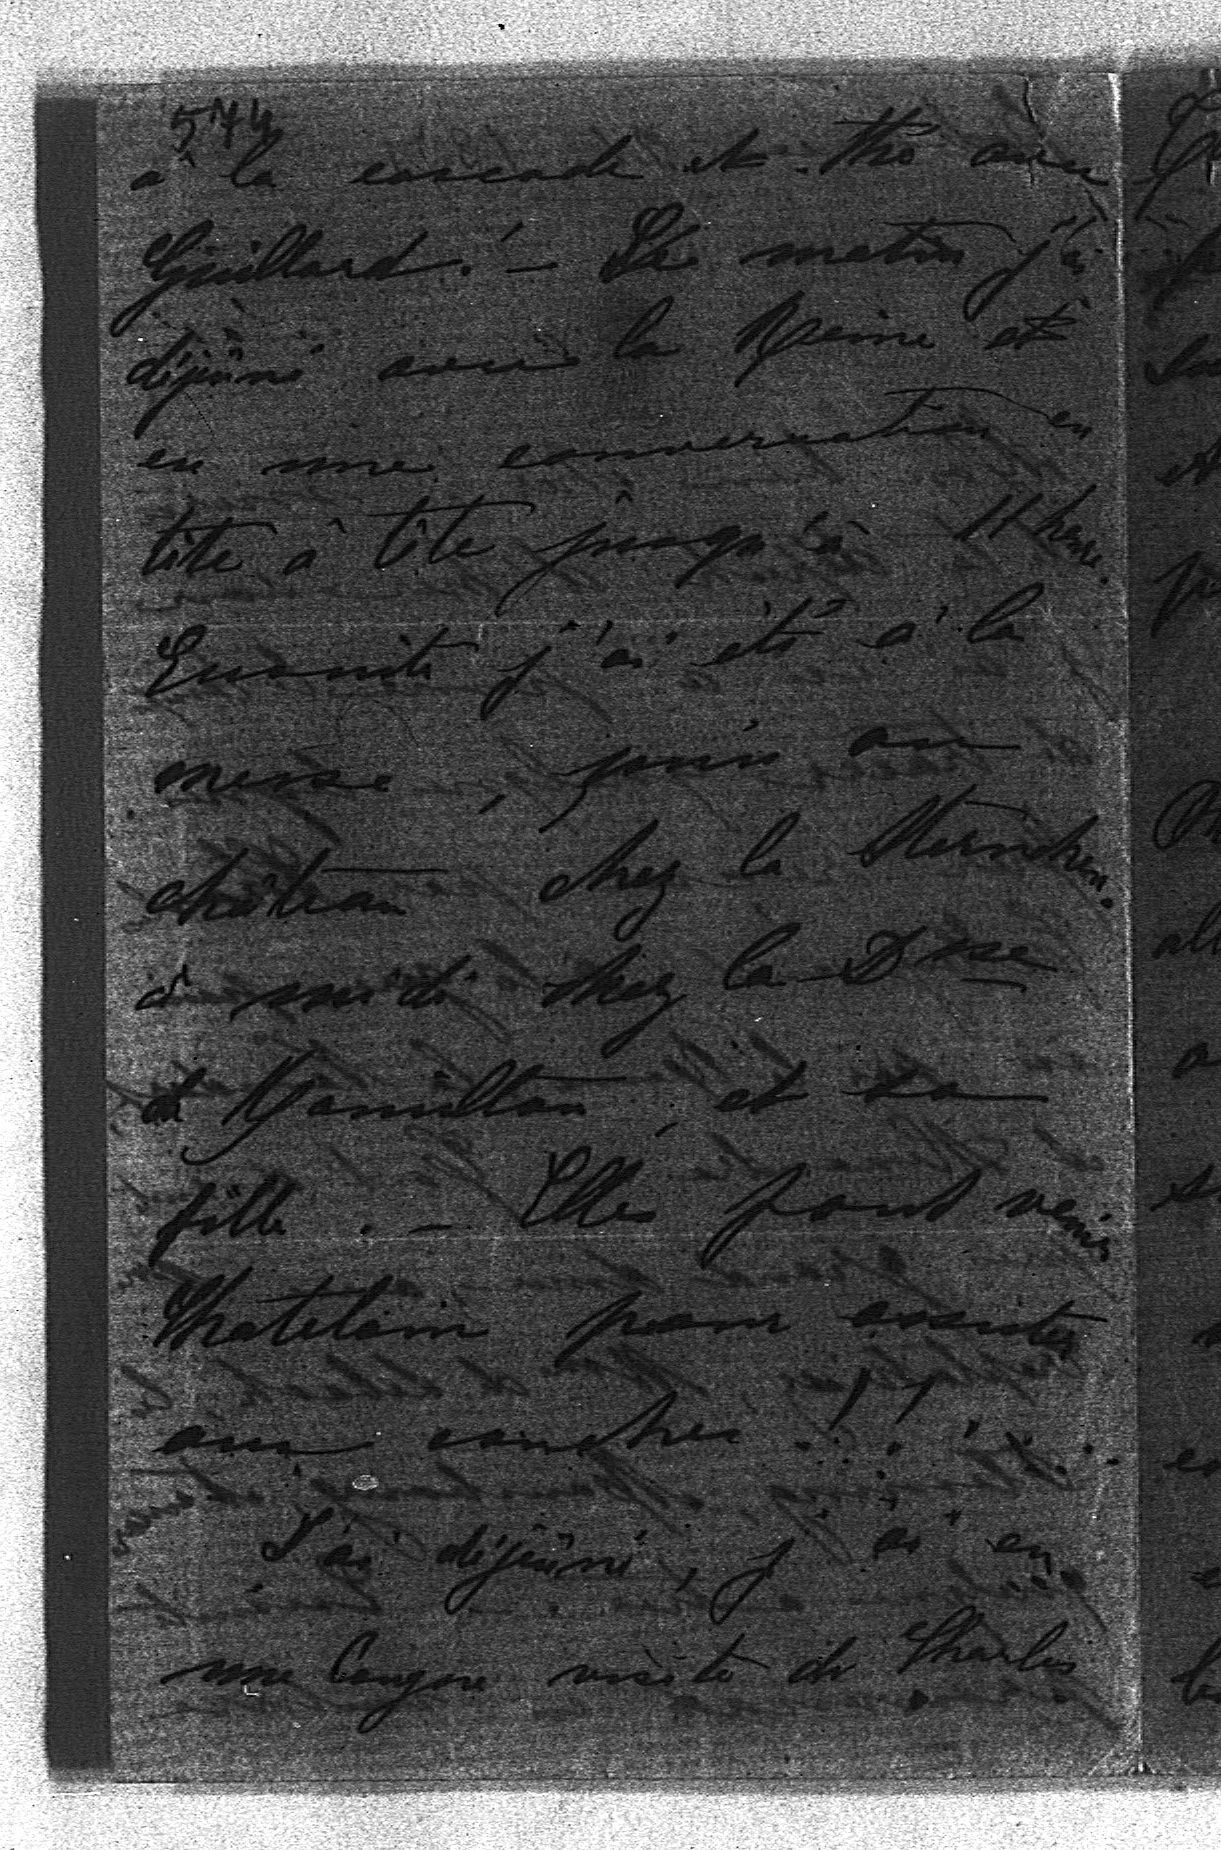 574
à la cascade et thé avec
Guillard. — Ce matin j'ai
déjeuné avec la Reine et
eu une conversation en
tête à tête jusqu'à 11 heu.
Ensuite j'ai été à la
messe, puis au
château chez la
à midi chez la Dsse
d'Hamilton et sa
fille. — Elles font venir
Chatelain pour assister
aux couches !!
J'ai déjeuné, j'ai eu
une longue visite de Charles